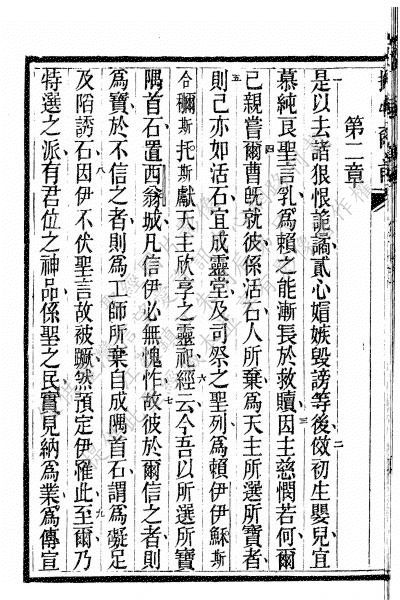 第二章
是以去諸狠恨詭譎貳心媢嫉毀謗等後傚初生嬰兒宜
慕純良聖言乳爲賴之能漸長於救贖因主慈憫若何爾
已親嘗爾曹旣就彼係活石人所棄爲天主所選所寶者
則己亦如活石宜成靈堂及司祭之聖列爲賴伊伊穌斯
合穪斯托斯獻天主欣享之靈祀經云今吾以所選所寶
隅首石置西翁城凡信伊必無愧怍故彼於爾信之者則
爲寶於不信之者則爲工師所棄自成隅首石謂爲礙足
及陷誘石因伊不伏聖言故被蹶然預定伊罹此至爾乃
特選之派有君位之神品係聖之民實見納爲業爲傳宣